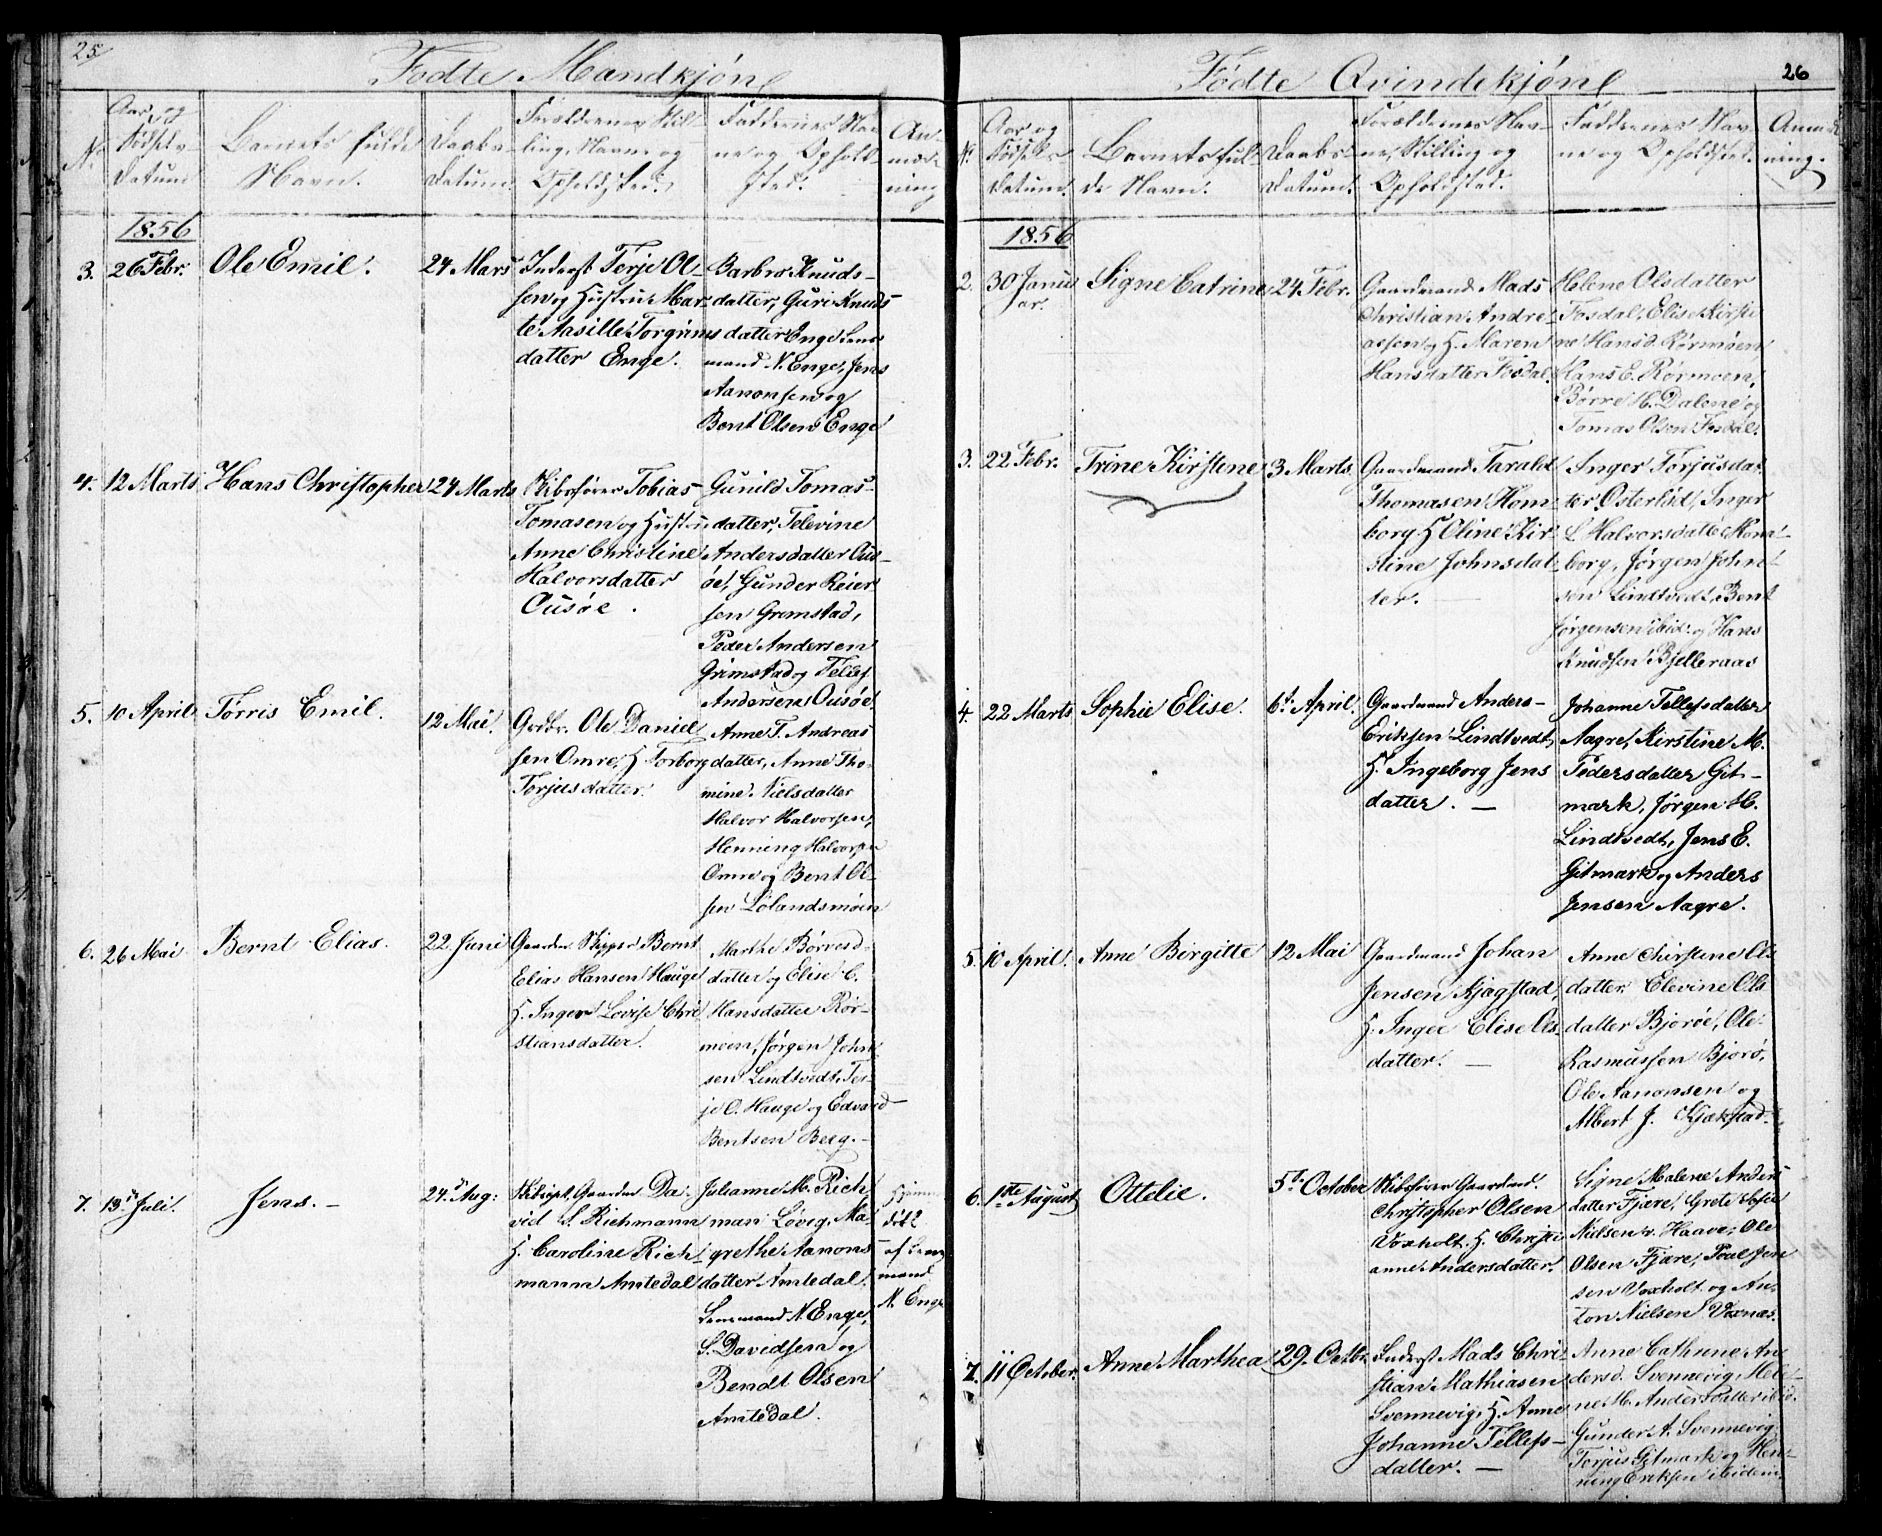 25
Fødte Mandkjøn
No
Aar og
Fødsels
Datum
Barnets fulde
Navn.
Daabs
Datum.
Forældrenes Stil-
ling, Navne og
Opholdsted.
Faddernes Nav-
ne og Ophold-
sted.
An-
mærk-
ning
1856
3.
26 Febr.
Ole Emil.
24 Mars
Inderst Terje Ol-
sen og Hustru Mar-
te Aasille Torgrims
datter Enge.
Barbro Knuds-
datter, Guri Knuds
datter Enge Lens
mand N. Enge, Jens
Aanonsen og
Bent Olsen Enge
4.
12 Marts
Hans Christopher
24 Marts
Skibsfører Tobias
Tomasen og Hustru
Anne Christine
Halvorsdatter
Ousøe.
Gunild Tomas-
datter, Televine
Andersdatter Ous-
øe, Gunder Reier
sen Grimstad,
Peder Andersen
Grimstad og Tellef
Andersen Ousøe.
5.
10 April
Tørris Emil.
12 Mai.
Grdbr. Ole Daniel
sen Omre, H Torborg
Torjusdatter.
Anne T. Andreas
datter, Anne Tho-
mine Nielsdatter
Halvor Halvorsen,
Henning Halvorsen
Omre og Bent Ol-
sen Lølandsmoen
6.
26 Mai
Bernt Elias.
22 Juni
Gaardm. Skipper Bernt
Elias Hansen Hauge
H. Inger Lovise Chri
stiansdatter.
Marthe Børresd-
datter og Elise C.
Hansdatter Rør-
moen, Jørgen John
sen Lindtvedt, Ter-
je O. Hauge og Edvard
Bentsen Berg.-
7.
19de Juli.
Jens.-
24de Aug:
Skibscpt, Gaardm. Da-
vid S. Richmann
H. Caroline Rich
mann Amtedal
Julianne M. Rich
man Løvig, Ma-
grethe Aanons
datter Amtedal,
Lensmand N. Enge,
S. Davidsen og
Bendt Olsen
Amtedal.
Hjemme
døbt
af Lens
mand
N. Enge
Fødte Qvindekjøn
26
No
Aar og
Fødsels
Datum.
Barnets ful-
de Navn.
Daabs-
Datum.
Forældrenes Nav-
ne, Stilling og
Opholdsted.
Faddernes Nav-
ne og Opholdsted.
Anmærk
ning.
1856
2.
30 Janu
ar.
Signe Catrine
24 Febr.
Gaardmand Mads
Christian Andre-
assen og H. Maren
Hansdatter Fosdal.
Helene Olsdatter
Fosdal, Elise Kirsti
ne Hansd. Rørmoen
Hans C. Rørmoen,
Børre H. Dalene og
Tomas Olsen Fosdal.
3.
22 Febr.
Trine Kirstine
3 Marts.
Gaardmand Tarald
Thomasen Hom-
borg H Oline Kir-
stine Johnsdat-
ter.
Inger Torjusdat
ter Østerlid, Inger
L Halvorsdatte Hom-
borg, Jørgen John-
sen Lindtvedt, Bent
Jørgensen ibid. og Hans
Knudsen Bjelleraas
4.
22 Marts
Sophie Elise.
6te April.
Gaardmand Anders
Eriksen Lindtvedt,
H. Ingeborg Jens
datter.
Johanne Tellefsdatter
Aagre, Kirstine M.
Pedersdatter Git-
mark, Jørgen H.
Lindtvedt, Jens E.
Gitmark og Anders
Jensen Aagre.
5.
10 April.
Anne Birgitte
12 Mai
Gaardmand Johan
Jensen Kjagstad,
H. Inger Elise Ols
datter.
Anne Chirstene Ols
datter Elevine Ols
datter Bjorøe, Ole
Rasmussen Bjorø,
Ole Aanonsen og
Albert J. Kjækstad.
6.
1ste August
Ottelie.
5te October
Skibsfører Gaardmd.
Christopher Olsen
Voxholt. H. Christi
anne Andersdatter.
Signe Malene Anders
datter Fjære, Grete Sofie
Nielsen v. Haave, Ole
Olsen Fjære, Poul Jen
sen Voxholt og An-
ton Nielsen Voxnæs.
7.
11 October.
Anne Marthea
29 Octbr.
Inderst Mads Chri-
stian Mathiasen
Svennevig, H. Anne
Johanne Tellefs-
datter.
Anne Cathrine An
dersd. Svennevig, Mali-
ne M. Andersdatter ibid.
Gunder A. Svennevig
Torjus Gitmark og Hen-
ning Eriksen ibidem.